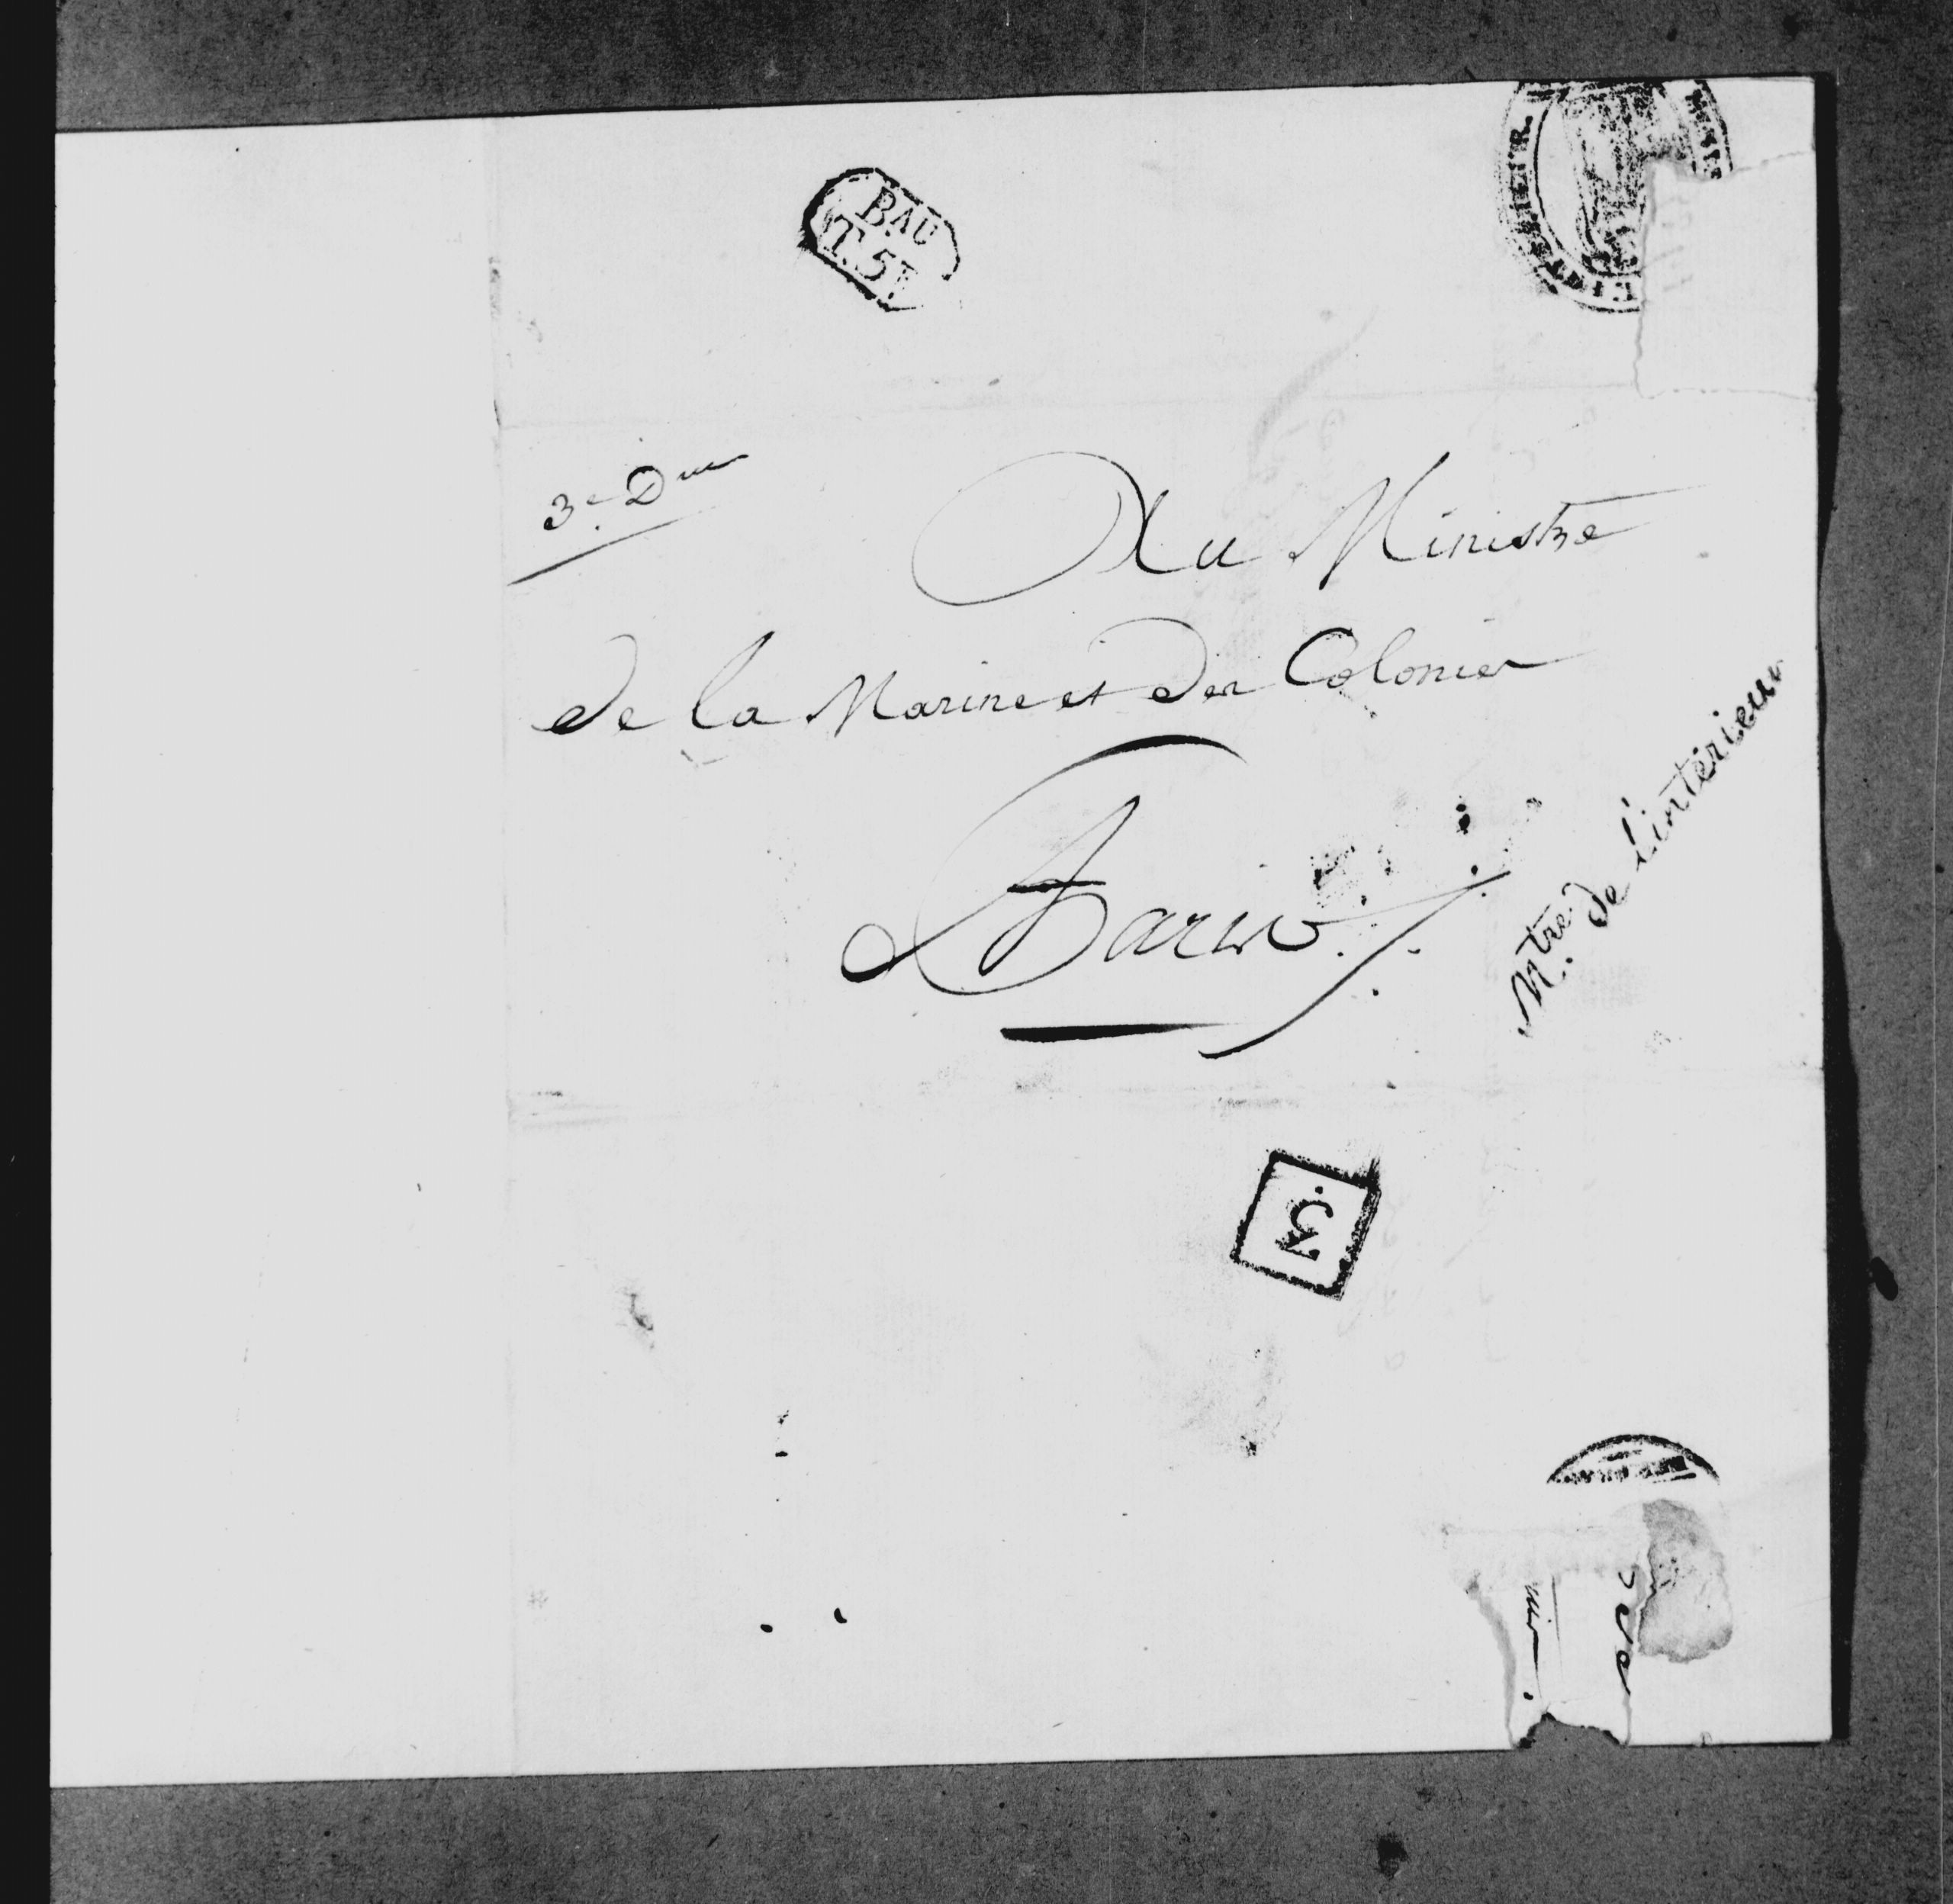 BAU
T.5
3e. Don
Au Ministre
de la Marine et des Colonies
Paris
Mtre. de l'intérieur
3